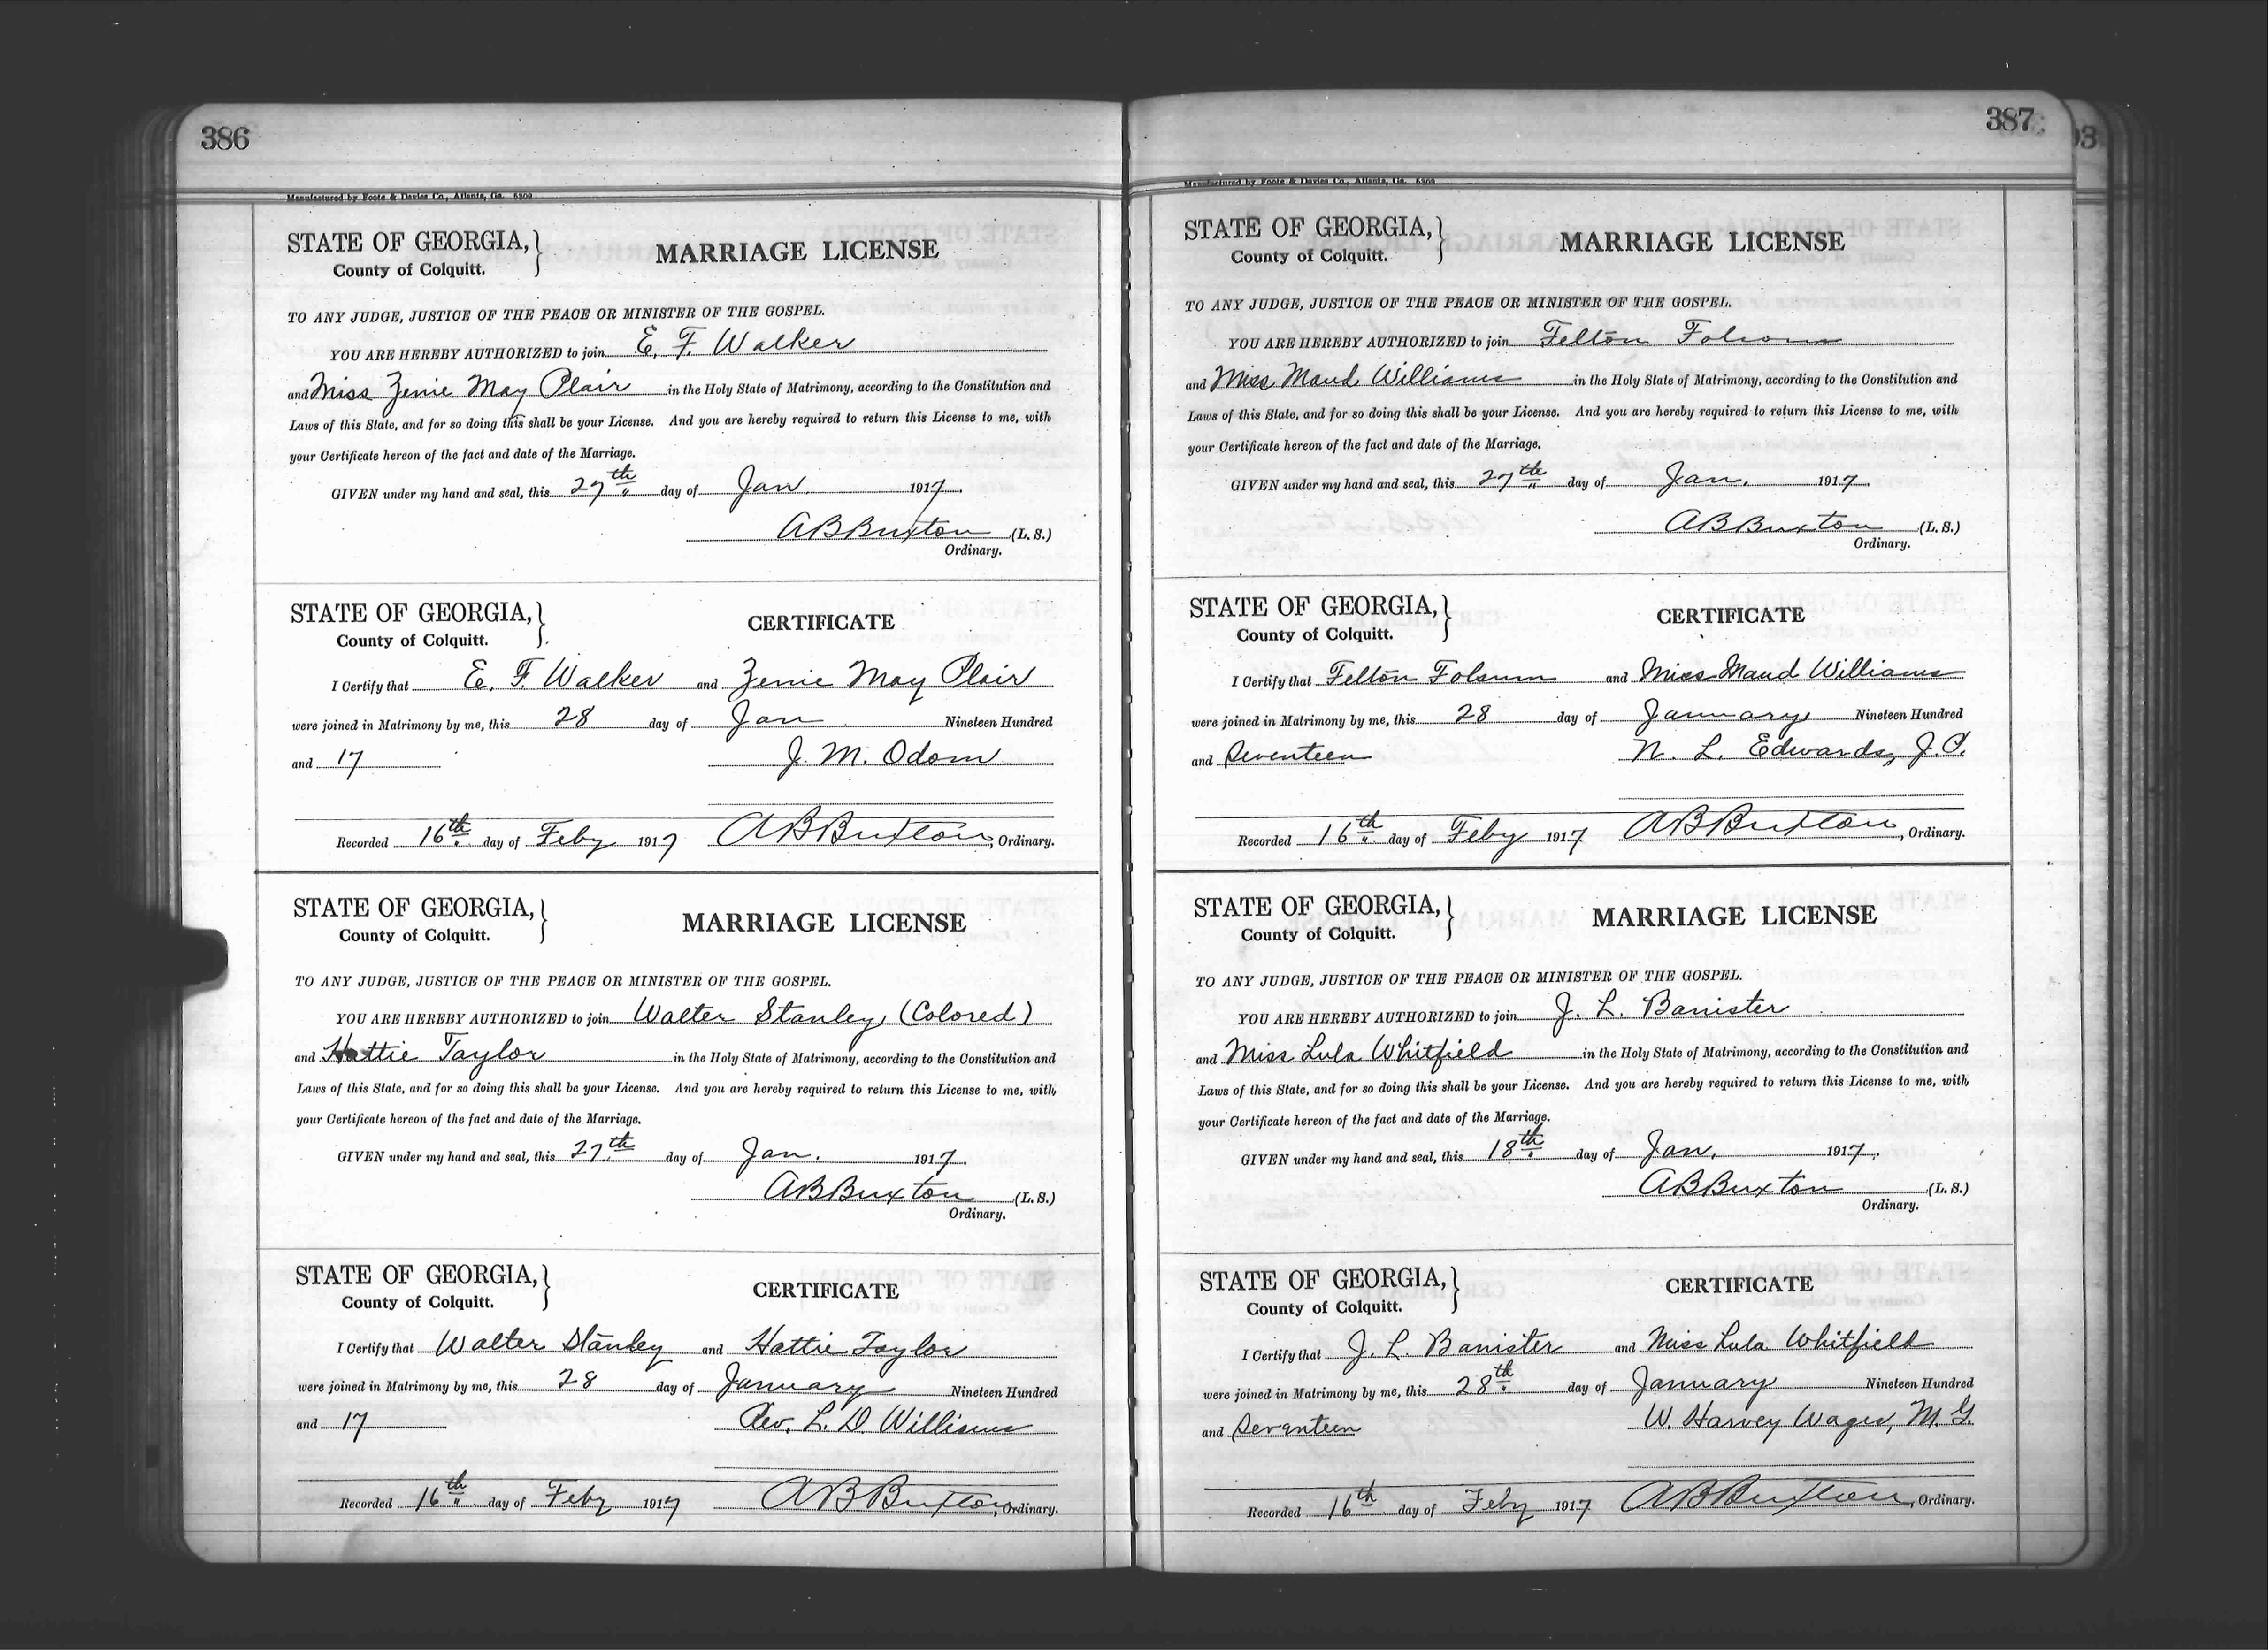 386
Manufactured by Foote & Davies Co., Atlanta, Ga. 5309
STATE OF GEORGIA,
County of Colquitt.
MARRIAGE LICENSE
TO ANY JUDGE, JUSTICE OF THE PEACE OR MINISTER OF THE GOSPEL.
YOU ARE HEREBY AUTHORIZED to join E. F. Walker
and Miss Zenie May Plair in the Holy State of Matrimony, according to the Constitution and
Laws of this State, and for so doing this shall be your License. And you are hereby required to return this License to me, with
your Certificate hereon of the fact and date of the Marriage.
GIVEN under my hand and seal, this 27th day of Jan. 1917.
A B Buxton (L. S.)
Ordinary.
STATE OF GEORGIA,
County of Colquitt.
CERTIFICATE
I Certify that E. F. Walker and Zenie May Plair
were joined in Matrimony by me, this 28 day of Jan Nineteen Hundred
and 17 J. M. Odom
Recorded 16th day of Feby 1917 A B Buxton, Ordinary.
STATE OF GEORGIA,
County of Colquitt.
MARRIAGE LICENSE
TO ANY JUDGE, JUSTICE OF THE PEACE OR MINISTER OF THE GOSPEL.
YOU ARE HEREBY AUTHORIZED to join Walter Stanley (Colored)
and Hattie Taylor in the Holy State of Matrimony, according to the Constitution and
Laws of this State, and for so doing this shall be your License. And you are hereby required to return this License to me, with
your Certificate hereon of the fact and date of the Marriage.
GIVEN under my hand and seal, this 27th day of Jan. 1917.
A B Buxton (L. S.)
Ordinary.
STATE OF GEORGIA,
County of Colquitt.
CERTIFICATE
I Certify that Walter Stanley and Hattie Taylor
were joined in Matrimony by me, this 28 day of January Nineteen Hundred
and 17 Rev. L. D. Williams
Recorded 16th day of Feby 1917 A B Buxton, Ordinary.
387
Manufactured by Foote & Davies Co., Atlanta, Ga. 5309
STATE OF GEORGIA,
County of Colquitt.
MARRIAGE LICENSE
TO ANY JUDGE, JUSTICE OF THE PEACE OR MINISTER OF THE GOSPEL.
YOU ARE HEREBY AUTHORIZED to join Felton Folsom
and Miss Maud Williams in the Holy State of Matrimony, according to the Constitution and
Laws of this State, and for so doing this shall be your License. And you are hereby required to return this License to me, with
your Certificate hereon of the fact and date of the Marriage.
GIVEN under my hand and seal, this 27th day of Jan. 1917.
A B Buxton (L. S.)
Ordinary.
STATE OF GEORGIA,
County of Colquitt.
CERTIFICATE
I Certify that Felton Folsum and Miss Maud Williams
were joined in Matrimony by me, this 28 day of January Nineteen Hundred
and Seventeen N. L. Edwards, J. P.
Recorded 16th day of Feby 1917 A B Buxton, Ordinary.
STATE OF GEORGIA,
County of Colquitt.
MARRIAGE LICENSE
TO ANY JUDGE, JUSTICE OF THE PEACE OR MINISTER OF THE GOSPEL.
YOU ARE HEREBY AUTHORIZED to join J. L. Banister
and Miss Lula Whitfield in the Holy State of Matrimony, according to the Constitution and
Laws of this State, and for so doing this shall be your License. And you are hereby required to return this License to me, with
your Certificate hereon of the fact and date of the Marriage.
GIVEN under my hand and seal, this 18th day of Jan. 1917.
A B Buxton (L. S.)
Ordinary.
STATE OF GEORGIA,
County of Colquitt.
CERTIFICATE
I Certify that J. L. Banister and Miss Lula Whitfield
were joined in Matrimony by me, this 28th day of January Nineteen Hundred
and Seventeen W. Harvey Wages, M. G.
Recorded 16th day of Feby 1917 A B Buxton, Ordinary.